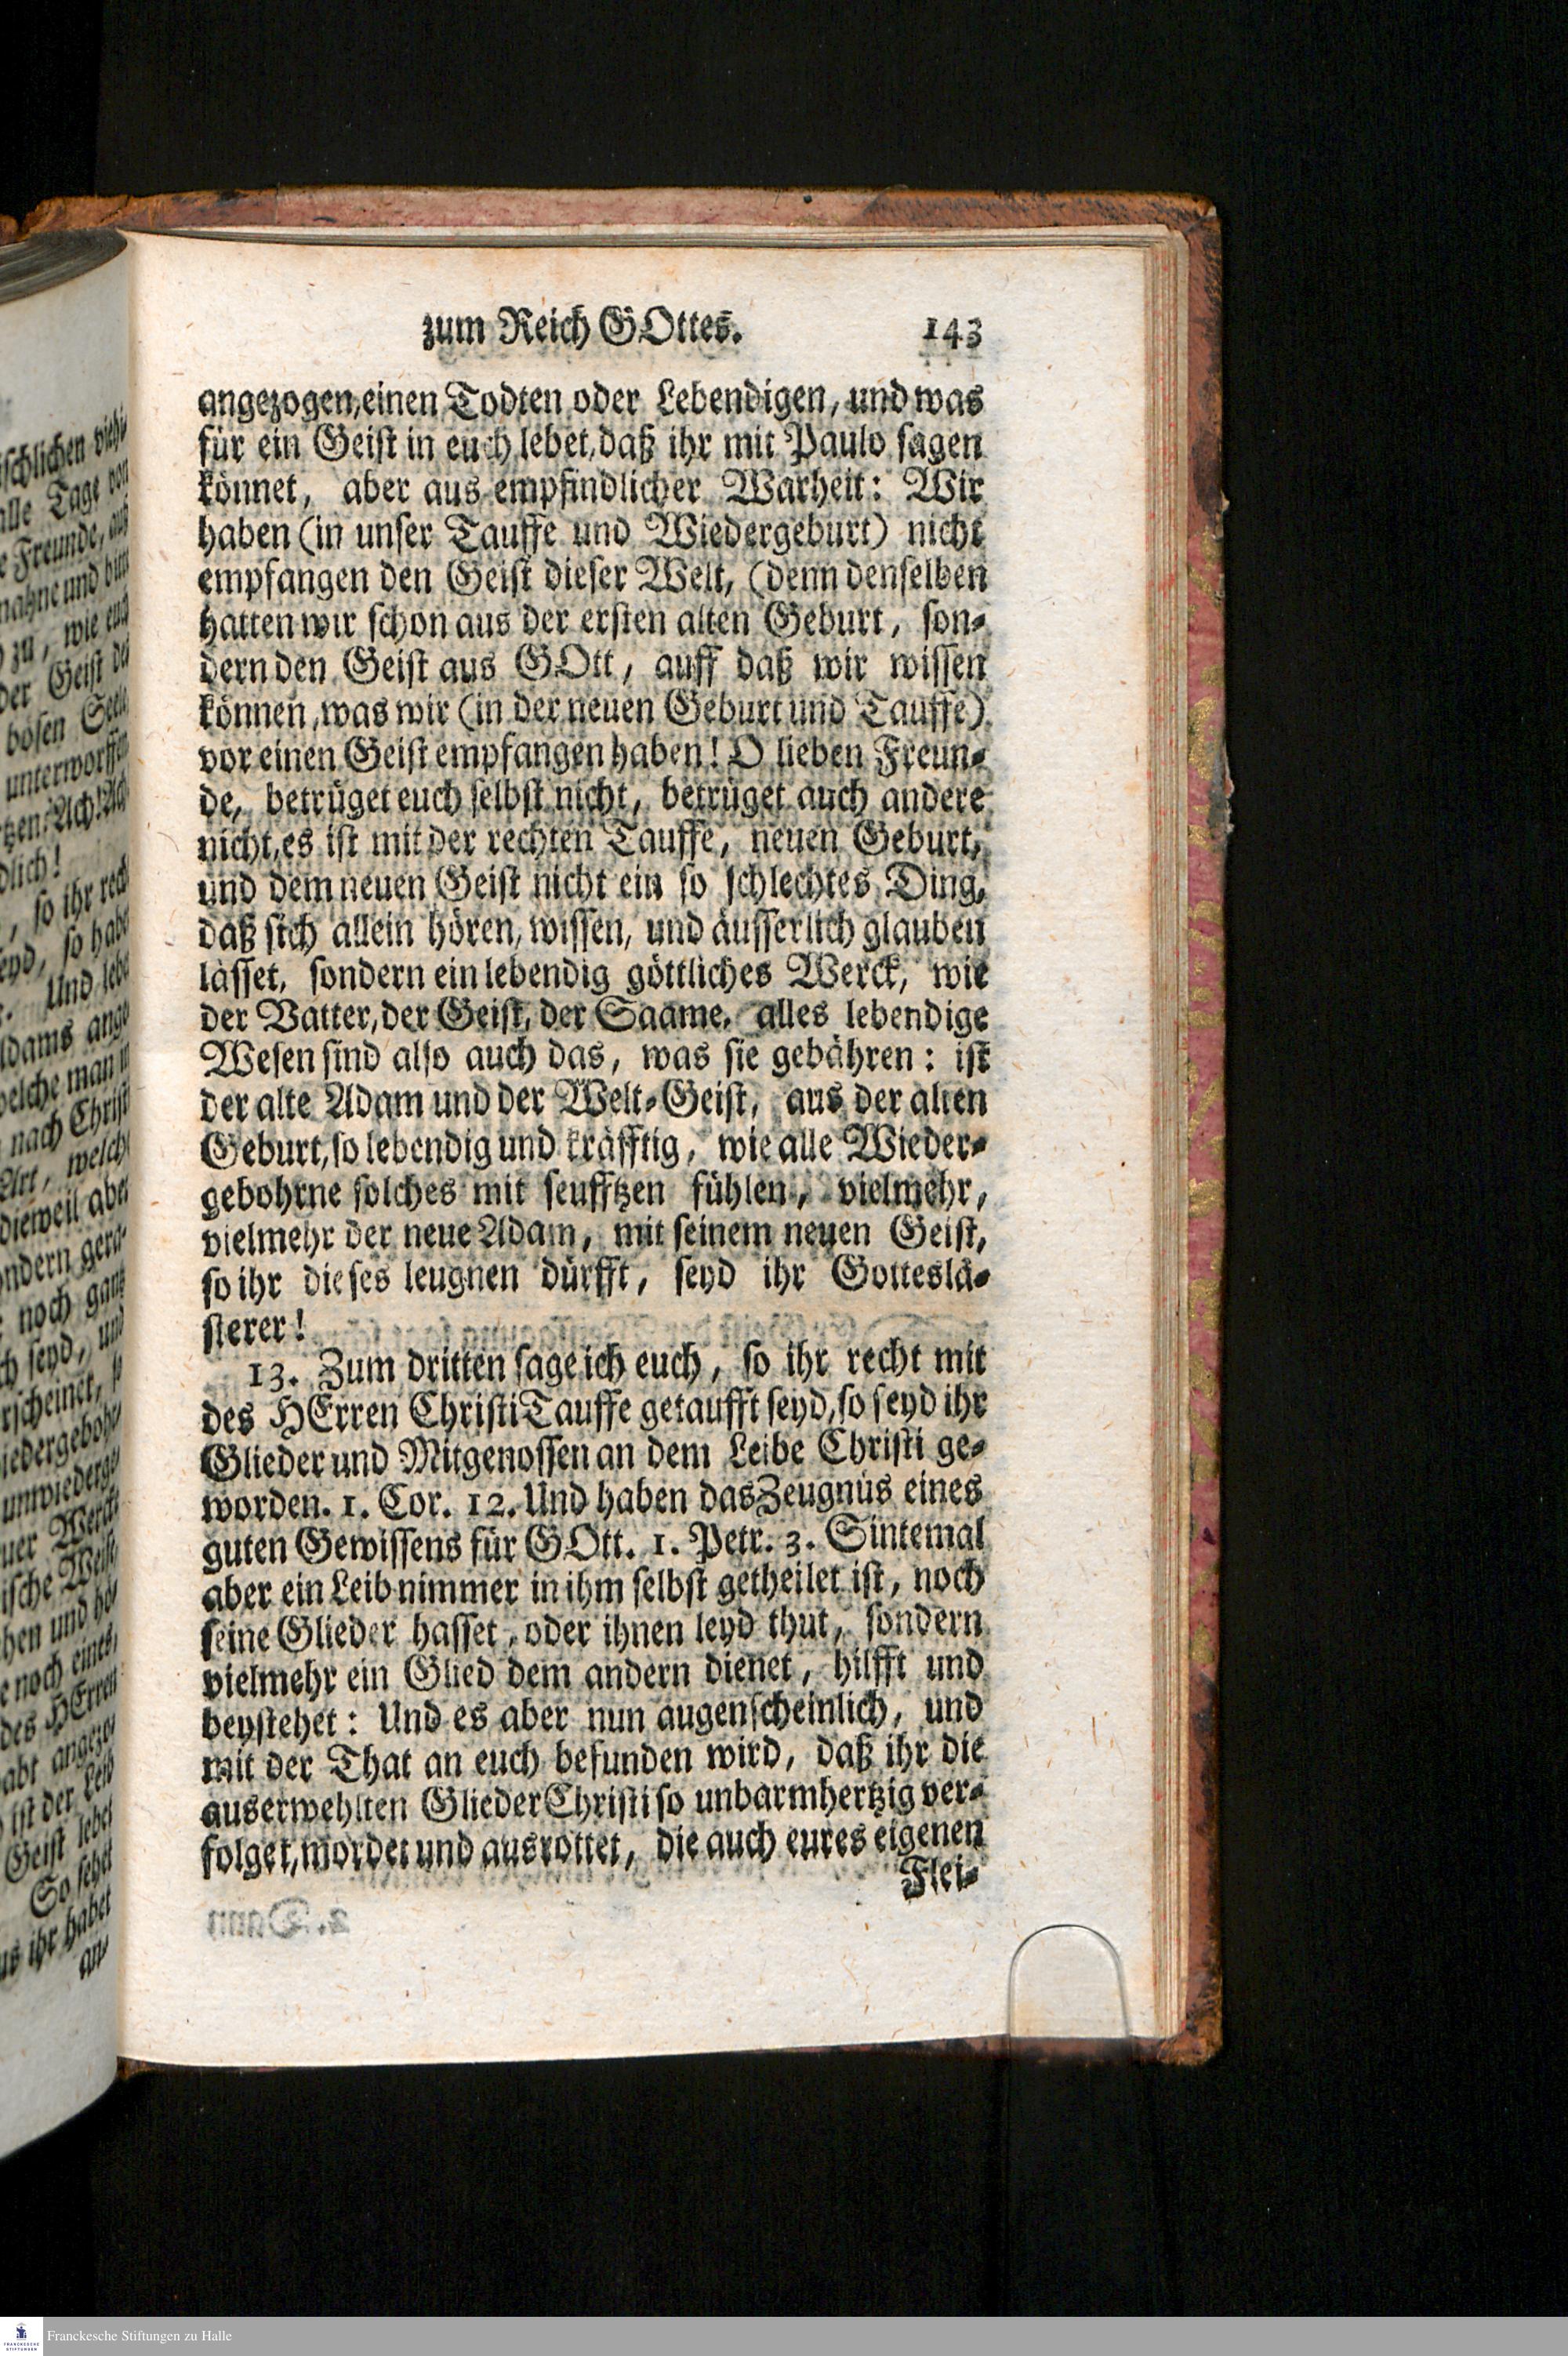 zum Reich GOttes. 143
angezogen, einen Todten oder Lebendigen, und was
für ein Geist in euch lebet, daß ihr mit Paulo sagen
könnet, aber aus empfindlicher Warheit: Wir
haben (in unser Tauffe und Wiedergeburt) nicht
empfangen den Geist dieser Welt, (denn denselben
hatten wir schon aus der ersten alten Geburt, son-
dern den Geist aus GOtt, auff daß wir wissen
können, was wir (in der neuen Geburt und Tauffe)
vor einen Geist empfangen haben! O lieben Freun-
de, betrüget euch selbst nicht, betrüget auch andere
nicht, es ist mit der rechten Tauffe, neuen Geburt,
und dem neuen Geist nicht ein so schlechtes Ding,
daß sich allein hören, wissen, und äusserlich glauben
lässet, sondern ein lebendig göttliches Werck, wie
der Vatter, der Geist, der Saame, alles lebendige
Wesen sind also auch das, was sie gebähren: ist
der alte Adam und der Welt-Geist, aus der alten
Geburt, so lebendig und kräfftig, wie alle Wieder-
gebohrne solches mit seufftzen fühlen, vielmehr,
vielmehr der neue Adam, mit seinem neuen Geist,
so ihr dieses leugnen dürfft, seyd ihr Gotteslä-
sterer!
13. Zum dritten sage ich euch, so ihr recht mit
des HErren Christi Tauffe getaufft seyd, so seyd ihr
Glieder und Mitgenossen an dem Leibe Christi ge-
worden. 1. Cor. 12. Und haben das Zeugnüs eines
guten Gewissens für GOtt. 1. Petr. 3. Sintemal
aber ein Leib nimmer in ihm selbst getheilet ist, noch
seine Glieder hasset, oder ihnen leyd thut, sondern
vielmehr ein Glied dem andern dienet, hilfft und
beystehet: Und es aber nun augenscheinlich, und
mit der That an euch befunden wird, daß ihr die
auserwehlten Glieder Christi so unbarmhertzig ver-
folget, mordet und ausrottet, die auch eures eigenen
Flei-
Franckesche Stiftungen zu Halle